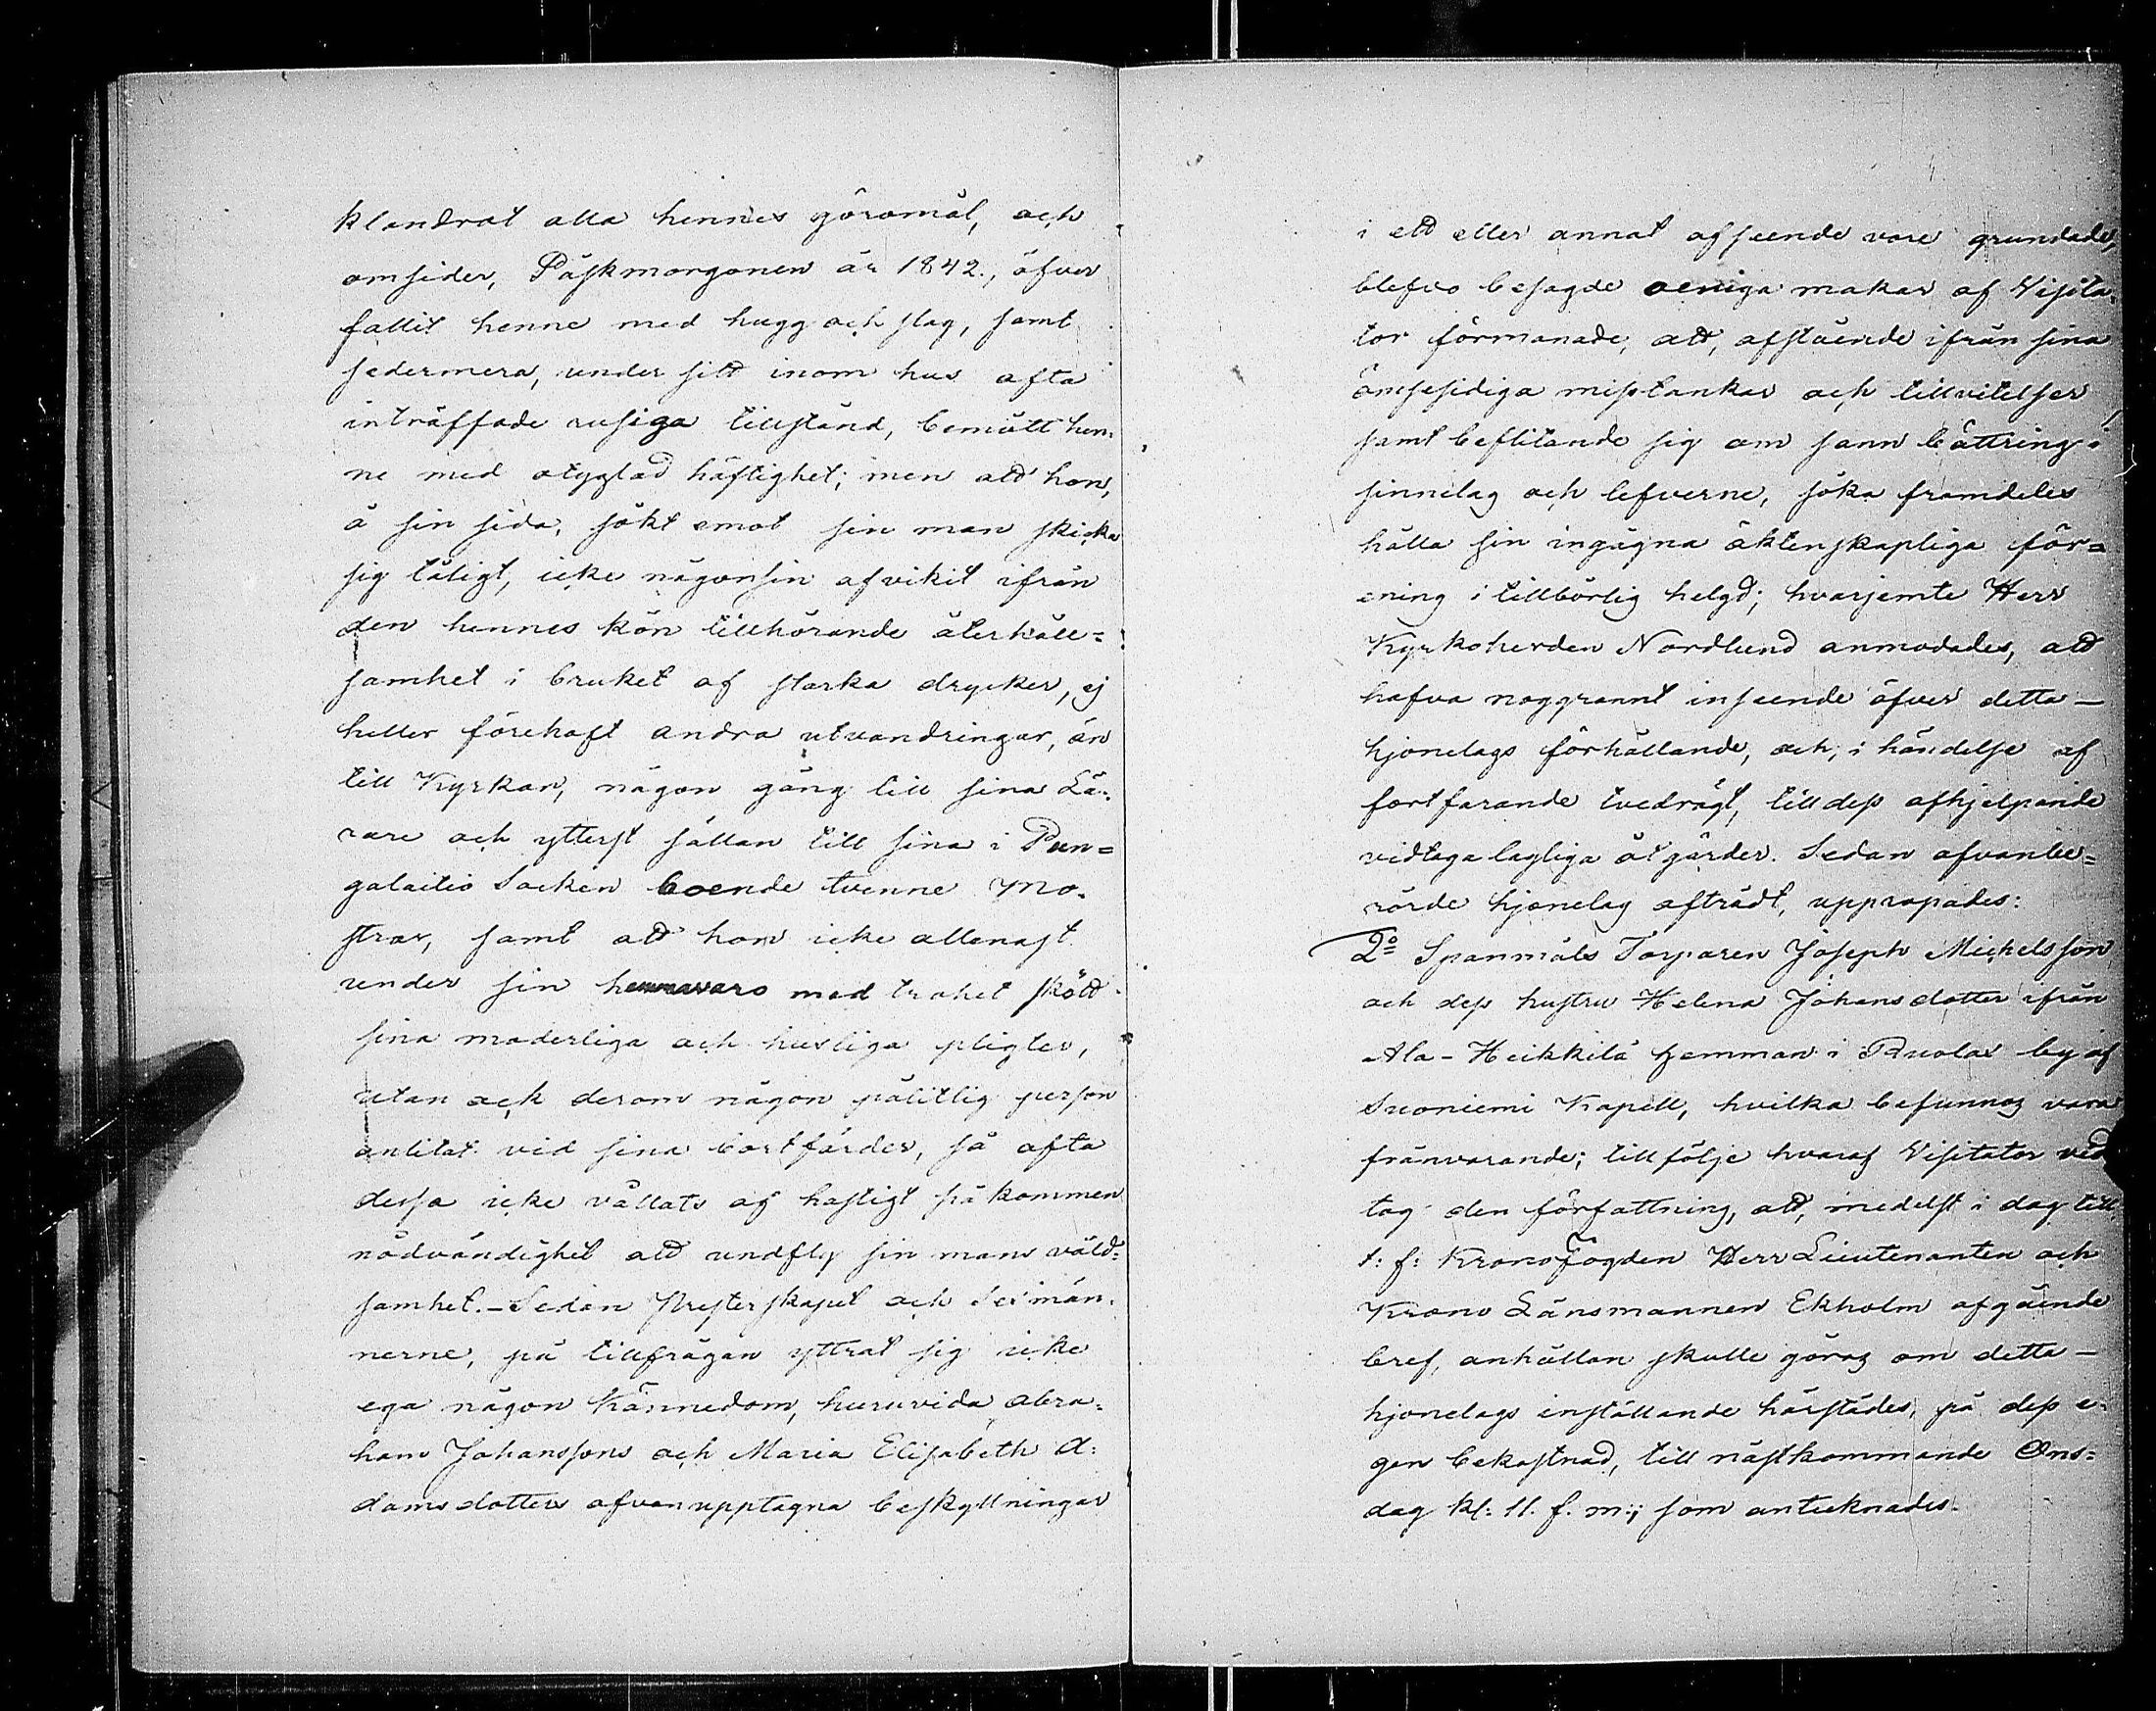 klandrat alla hennes göromål, och
omsider, Påskmorgonen år 1842., öfver
fallit henne med hugg och slag, samt
sedermera, under sitt inom hus ofta
inträffade rusiga tillstånd, bemött hen-
ne med otyglad häftighet; men att hon,
å sin sida, sökt emot sin man skicka
sig tåligt, icke någonsin afvikit ifrån
den hennes kön tillhörande återhåll=
samhet i bruket af starka drycker, ej
heller förehaft andra utvandringar, än
till Kyrkan, någon gång till sina Lä-
rare och ytterst sällan till sina i Pun=
galaitio Socken boende tvenne Mo-
strar, samt att hon icke allenast
under sin hemmavaro med trohet skött
sina moderliga och husliga pligter,
utan ock derom någon pålitlig person
anlitat vid sina bortfärder, så ofta
dessa icke vållats af hastigt påkommen
nödvändighet att undfly sin mans våld-
samhet. – Sedan Presterskapet och Sexmän-
nerne, på tillfrågan yttrat sig icke
ega någon kännedom, huruvida Abra-
ham Johanssons och Maria Elisabeth A-
damsdotters ofvanupptagna beskyllningar
i ett eller annat afseende vore grundade,
blefvo besagde oeniga makar af Visita-
tor förmanade, att, afstående ifrån sina
ömsesidiga misstankar och tillvitelser,
samt beflitande sig om sann bättring i
sinnelag och lefverne, söka framdeles
hålla sin ingågna äktenskapliga för=
ening i tillbörlig helgd; hvarjemte Herr
Kyrkoherden Nordlund anmodades, att
hafva noggrannt inseende öfver detta –
hjonelags förhållande, och, i händelse af
fortfarande tvedrägt, till dess afhjelpande
vidtaga lagliga åtgärder. Sedan ofvanbe=
rörde hjonelag afträdt, uppropades:
2o Spanmåls Torparen Joseph Michelsson
och dess hustru Helena Johansdotter ifrån
Ala-Heikkilä hemman i Buolax by af
Suoniemi Kapell, hvilka befunnos vara
frånvarande; till följe hvaraf Visitator ved
tog den författning, att, medelst i dag till
t: f: Kronofogden Herr Lieutenanten och
Krono Länsmannen Ekholm afgående
bref, anhållan skulle göras om detta –
hjonelags inställande härstädes, på dess e-
gen bekostnad, till nästkommande Ons=
dag kl: 11. f. m:; som antecknades.